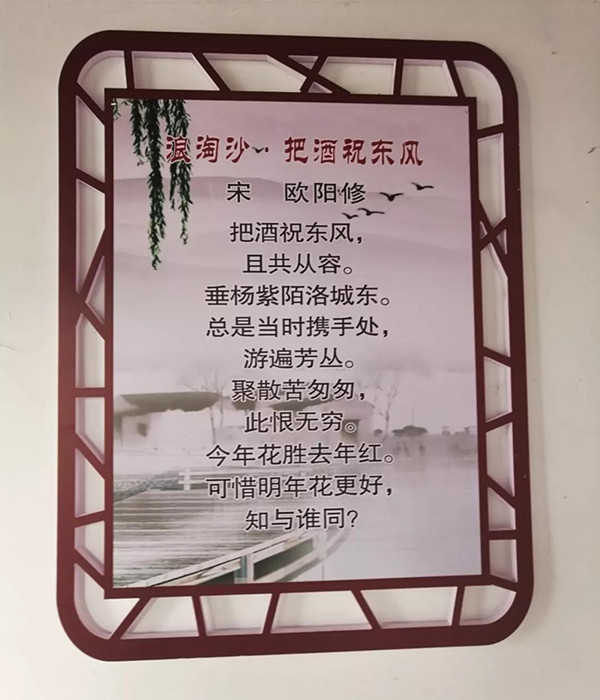 浪淘沙·把酒祝东风
宋 欧阳修
把酒祝东风，
且共从容。
垂杨紫陌洛城东。
总是当时携手处，
游遍芳丛。
聚散苦匆匆，
此恨无穷。
今年花胜去年红。
可惜明年花更好，
知与谁同？